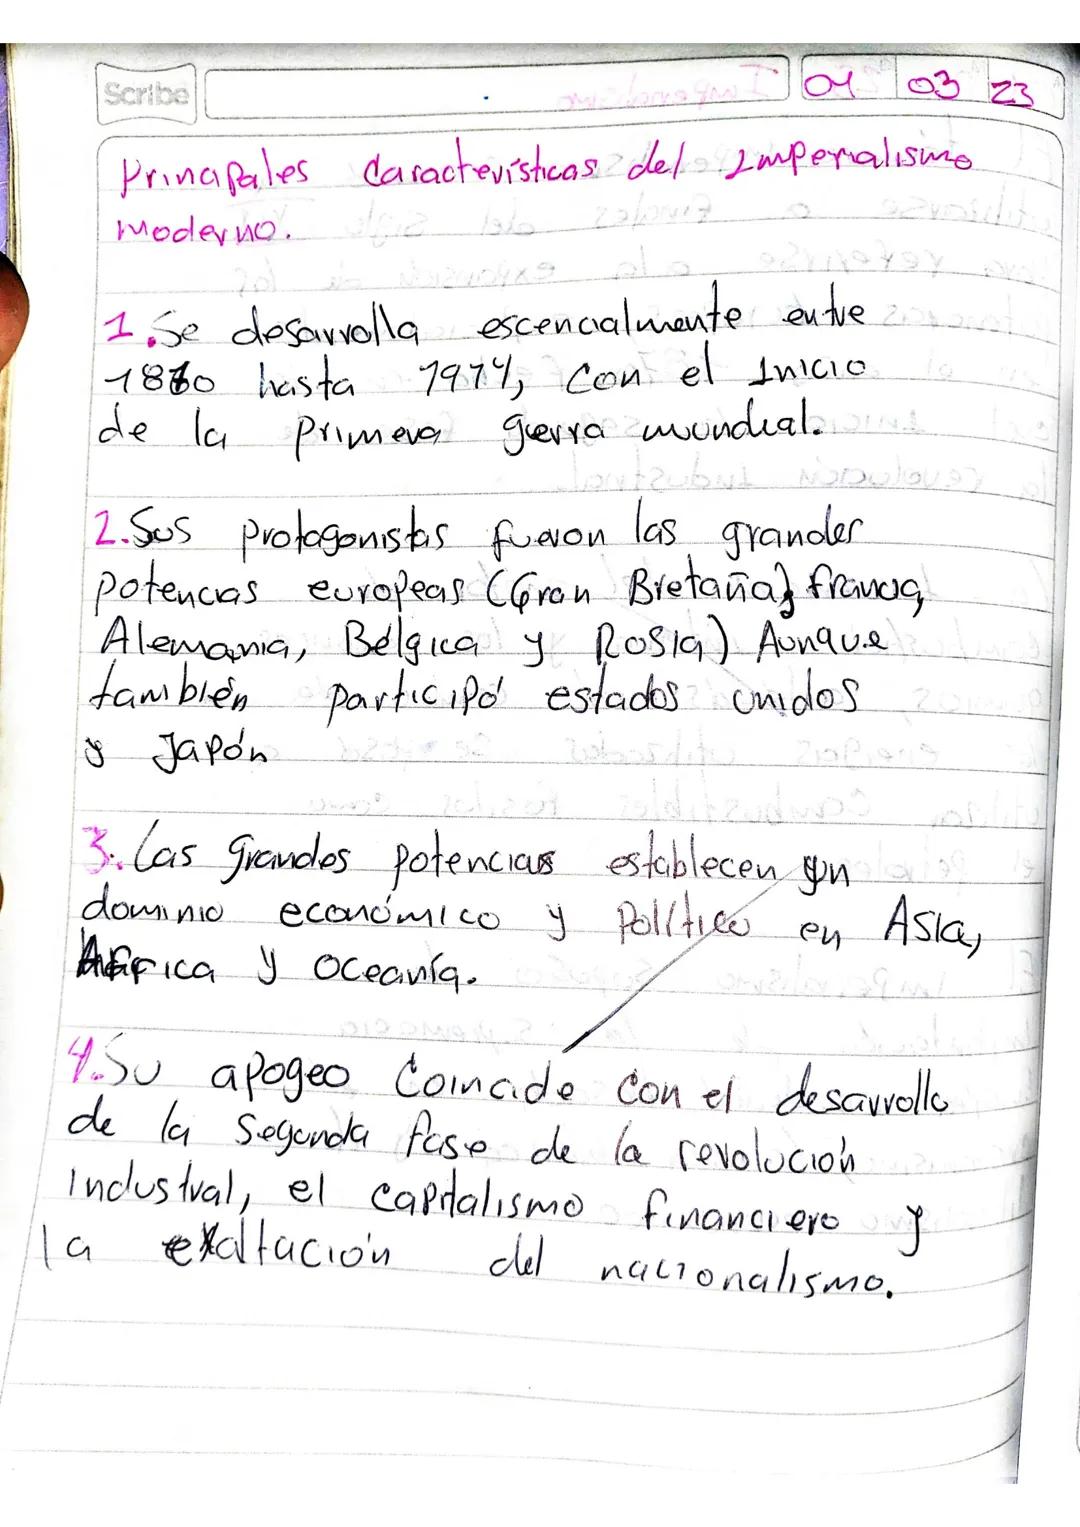 Scribe
04 03 23
Principales Características del Imperialismo
Moderno.
1. Se desarrolla escencialmente entre
1870 hasta 1914, con el Inicio
de la primera guerra mundial.
2. Sus protagonistas fueron las grandes
potencias europeas (Gran Bretaña, francia,
Alemania, Bélgica y Rusia) Aunque
también participó estados unidos
y Japón
3. Las grandes potencias establecen un
dominio económico y Político en Asia,
Africa y oceanía.
4. Su apogeo Coincide con el desarrollo
de la Segunda fase de la revolución
Industrial, el capitalismo financiero y
la exaltación del nacionalismo.